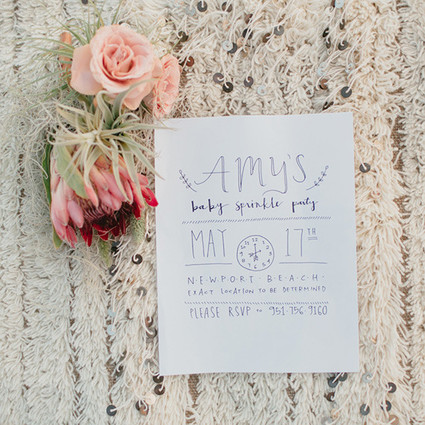 AMY'S
baby sprinkle party
MAY 17TH
NEWPORT BEACH
EXACT LOCATION TO BE DETERMINED
PLEASE RSVP to 951·756·9160